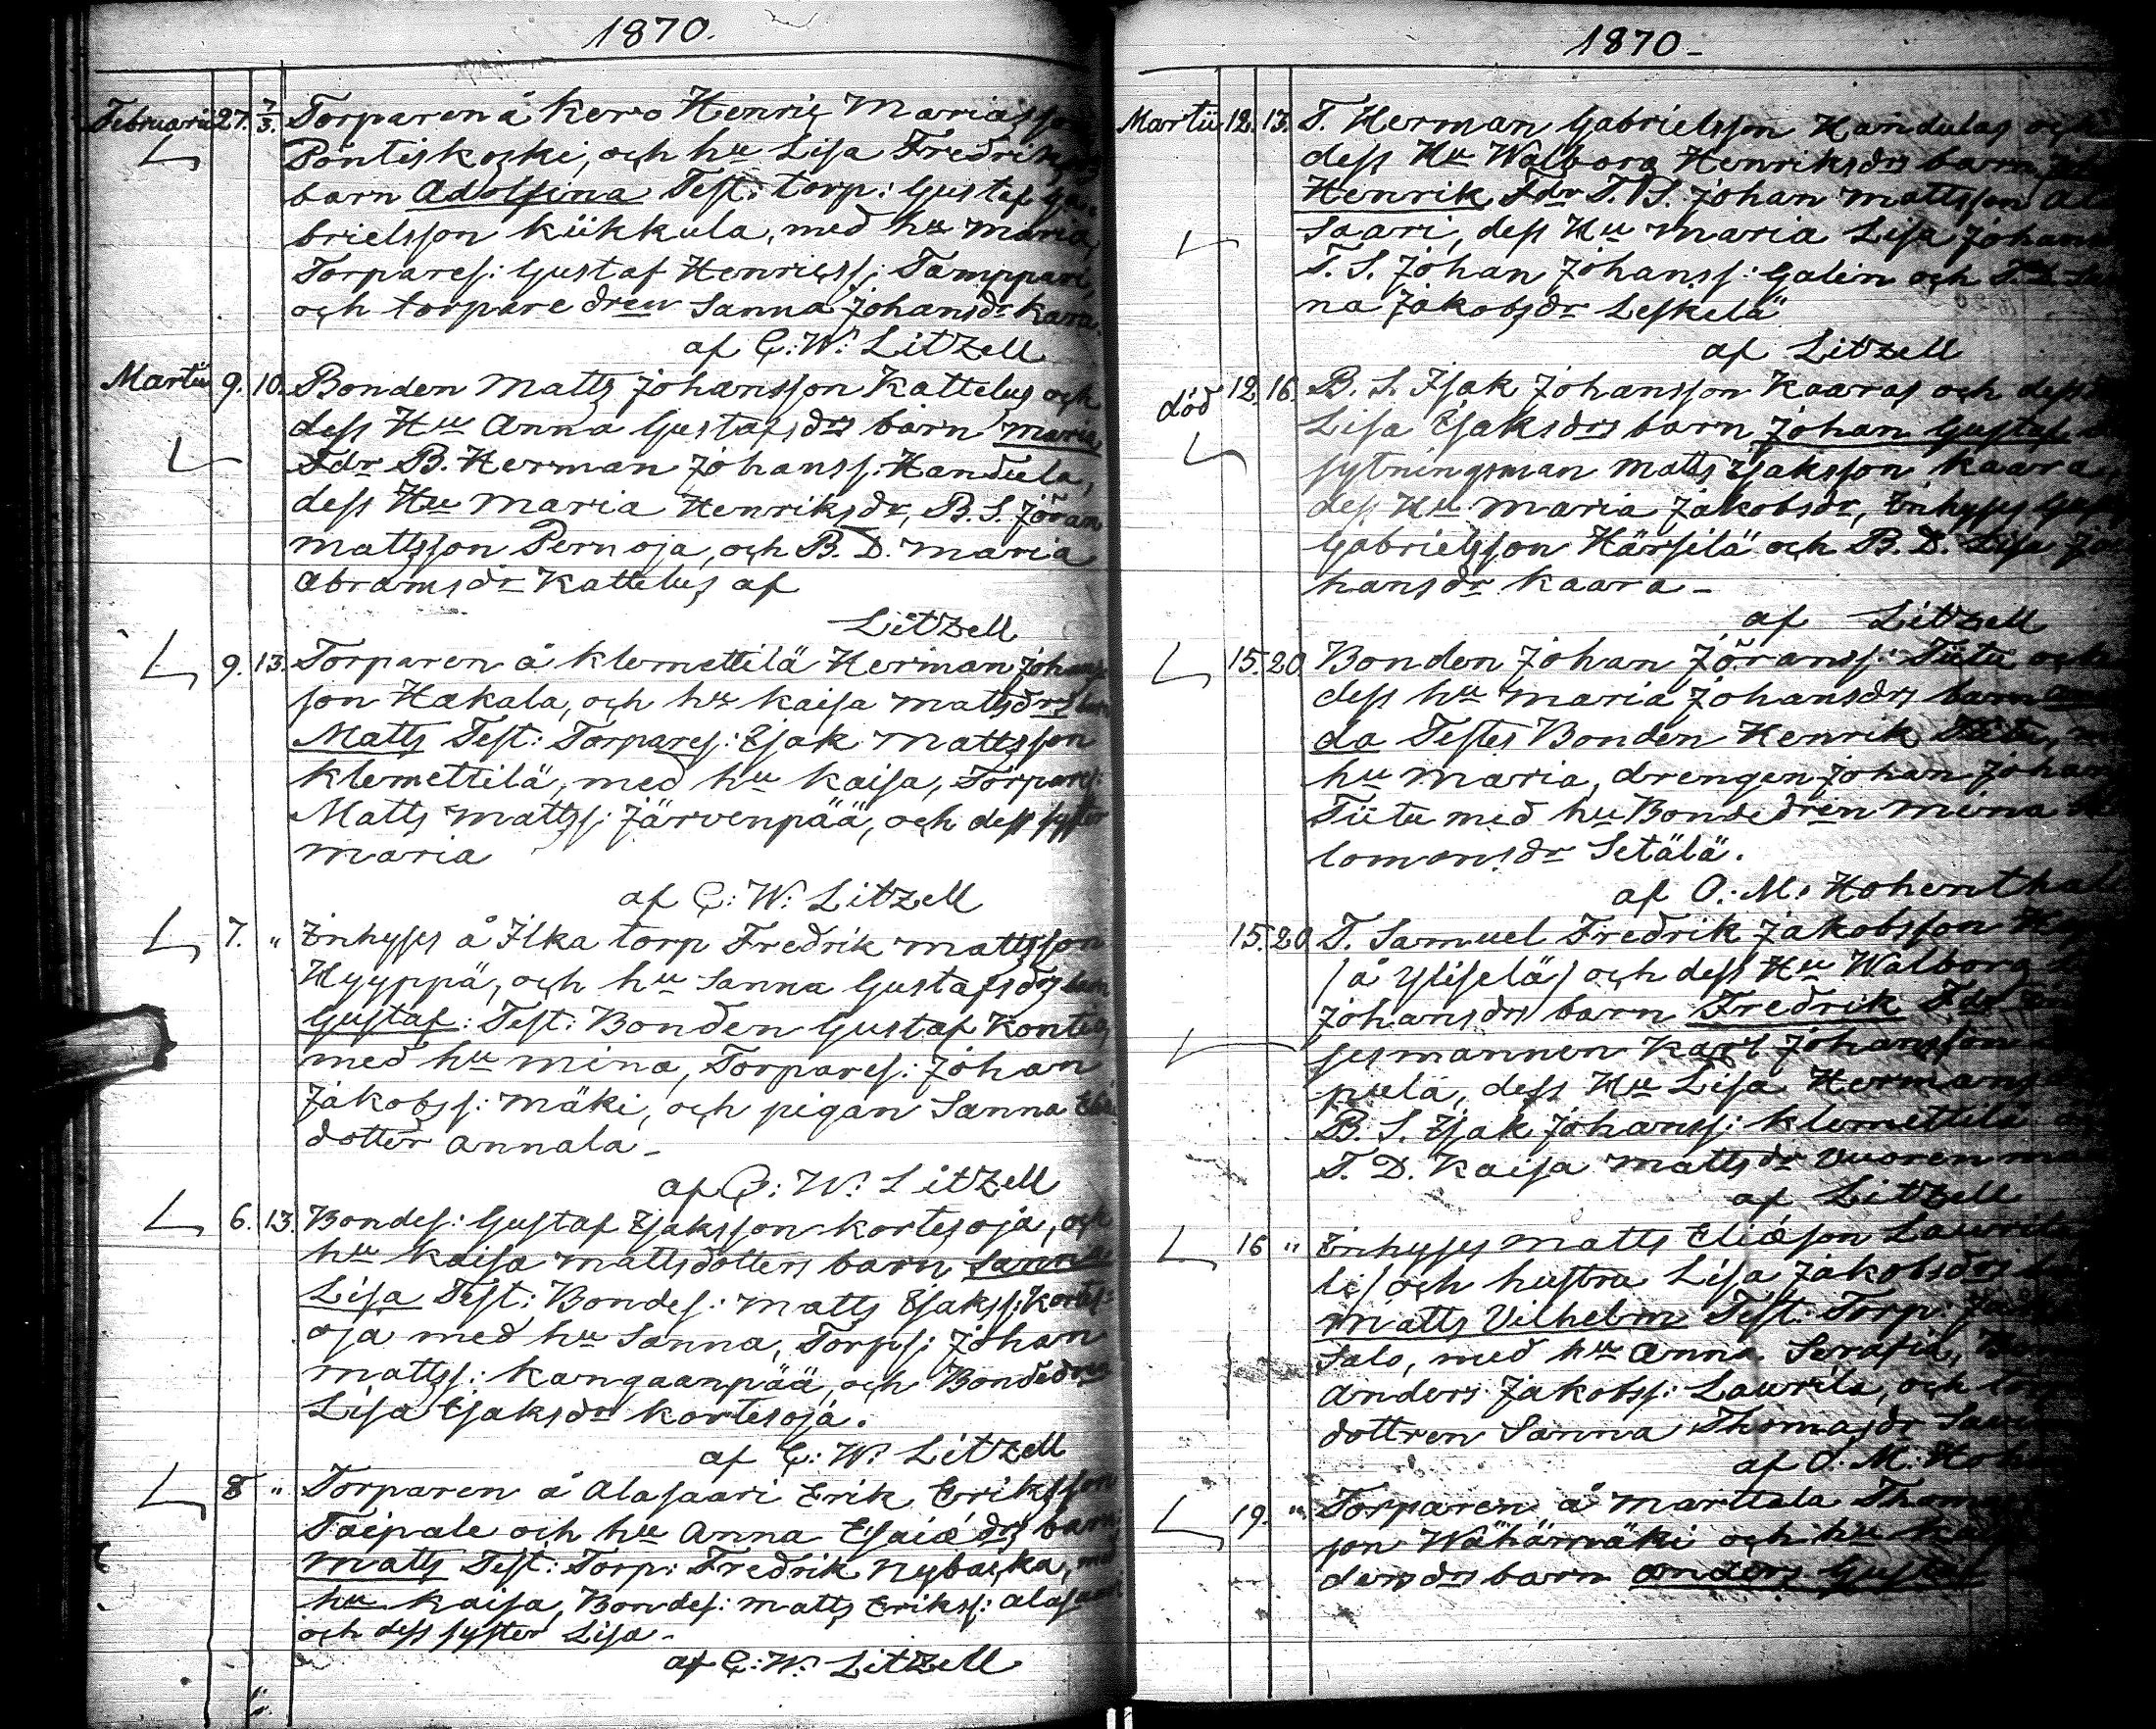 1870.
Februarii 27. 7/3. Torparen å Kero Henric Mariasson
Pöntiskoski, och hu Lisa Fredriksdrs
barn Adolfina Test: torp: Gustaf Ga-
brielsson Kükkula, med hu Maria,
Torpares: Gustaf Henricss: Tamppari,
och torpare dren Sanna Johansdr Kara
af C: W: Litzell
Martii 9. 10. Bonden Matts Johansson Kattelus och
dess Hu Anna Gustafsdrs barn Maria
Fdr B. Herman Johanss: Handula,
dess Hu Maria Henriksdr, B. S. Jöran
Mattsson Pernoja, och B. D. Maria
Abramsdr Kattelus af
Litzell
9. 13. Torparen å Klemettilä Herman Johans-
son Hakala, och hu Kaisa Mattsdrs barn
Matts Test: Torpares: Esak Mattsson
Klemettilä, med hu Kaisa, Torpares:
Matts Mattss: Järvenpää, och dess syster
Maria
af C: W: Litzell
7. " Inhyses å Ilka torp Fredrik Mattsson
Hyyppä, och hu Sanna Gustafsdrs barn
Gustaf: Test: Bonden Gustaf Kontas
med hu Mina, Torpares: Johan
Jakobss: Mäki, och pigan Sanna
dotter Annala-
af C: W: Litzell
6. 13. Bondes: Gustaf Esaksson Kortesoja, och
hu Kaisa Mattsdotters barn Sanna
Lisa Test: Bondes: Matts Esakss: Kortes-
oja med hu Sanna, Torps: Johan
Mattss: Kangaanpää, och Bondedren
Lisa Esaksdr Kortesoja.
af C: W: Litzell
8 " Torparen å Alasaari Erik Eriksson
Taipale och hu Anna Esaiædrs barn
Matts Test: Torp: Fredrik Nybacka, med
hu Kaisa, Bondes: Matts Erikss: Alasaari
och dess syster Lisa-
af C: W: Litzell
1870-
Martii 12. 13. T. Herman Gabrielsson Handulas och
dess Hu Walborg Henriksdrs barn
Henrik Fdr T. S. Johan Mattsson Ala
saari, dess Hu Maria Lisa Johans
T. S. Johan Johanss: Galin och T. D.
na Jakobsdr Leskelä
af Litzell
död 12. 16. B. S. Isak Johansson Kaaras och dess
Lisa Esaksdrs barn Johan Gustaf
sytningsman Matts Esaksson Kaara,
dess Hu Maria Jakobsdr, Inhyses
Gabrielsson Härsilä och B. D. Lisa Jo
hansdr Kaara-
af Litzell
15. 20 Bonden Johan Jöranss: Tiitu och
dess hu Maria Johansdrs barn
da Testes Bonden Henrik Tiitu,
hu Maria, drengen Johan Johan
Tiitu med hu Bondedren Mina
lomonsdr Setälä.
af O: M: Hohenthal
15. 20 T. Samuel Fredrik Jakobsson
/å Yliselä/ och dess Hu Walborg
Johansdrs barn Fredrik Fdr
sesmannen Karl Johansson
pula, dess Hu Lisa Hermans
B. S. Esak Johanss: Klemettilä
T. D. Kaisa Mattsdr Vuorenmaa
af Litzell
16 " Inhyses Matts Eliæson Laurila
le/ och hustru Lisa Jakobsdrs
Matts Vilhelm Test: Torp:
Salo, med hu Anna Serafia,
Anders Jakobss: Laurila, och torp
dottren Sanna Thomasdr
af O. M: Hohen
19. " Torparen å Marttala Thomas
son Wähämäki och hu
dersdrs barn Anders Gustaf